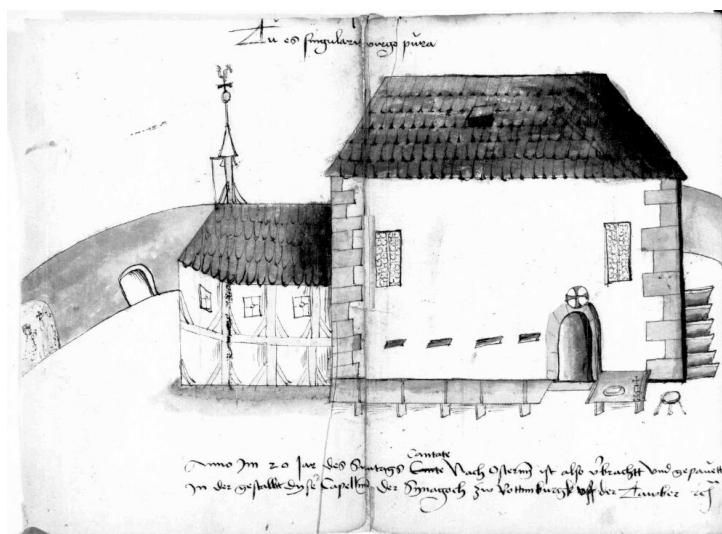 Tu es singularis virgo pura
Cantate
Anno Im 20 Jar des Suntags Nach Ostern ist also und gepauett
In der gestallt dyser Capelln der Synagoch zw Rottinburgk uff der Tawber